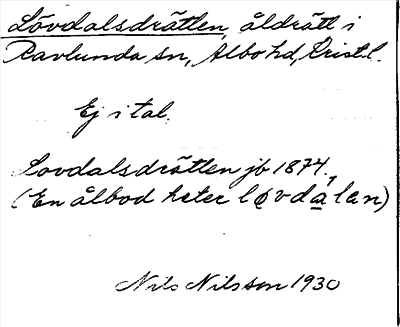 Lövdalsdrätten, åldrätt i
Ravlunda sn, Albo hd, Krist.l.
Ej i tal.
Lovdalsdrätten jb 1874.
(En ålbod heter løvdạlan)
Nils Nilsson 1930